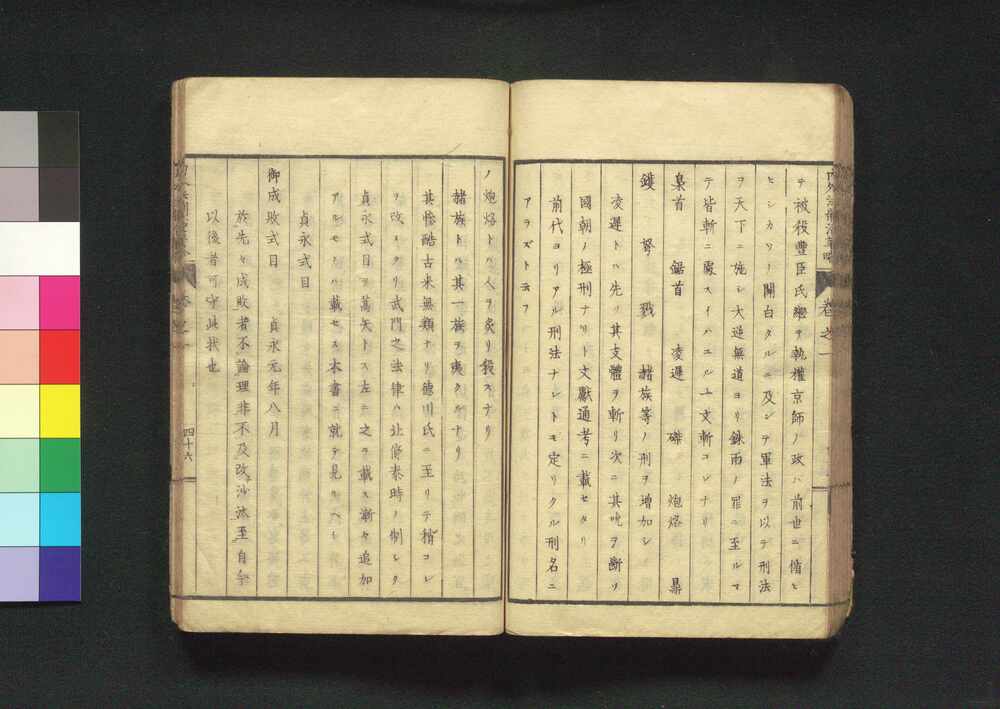 卷之一
テ被役豊臣氏繼テ執權京師ノ政ハ前世ニ循ヒ
ヒシカソノ關白タルニ及ンテ軍法ヲ以テ刑法
ヲ天下ニ施シ大逆無道ヨリ錄両ノ罪ニ至ルマ
テ皆斬ニ處スイハユル一文斬コレナリ
梟首 鋸首 凌遲 磔 炮烙 鼎
鑊 孥戮 諸族等ノ刑ヲ增加シ
凌遲トハ先ツ其支體ヲ斬リ次ニ其吭ヲ斷リ
國朝ノ極刑ナリト文獻通考ニ載セタリ
前代ヨリアル刑法ナレトモ定リタル刑名ニ
アラズト云フ
ノ炮烙トハ人ヲ炙リ殺スナリ
諸族トハ其一族ヲ夷クルナリ
其慘酷古来無類ナリ德川氏ニ至リテ稍コレ
ヲ改メタリ武門之法律ハ北條泰時ノ制シタ
貞永式目ヲ嚆矢トス左ニ之ヲ載ス漸々追加
アルモノハ載セス本書ニ就テ見ルヘシ
貞永式目
御成敗式目 貞永元年八月
於先々成敗者不論理非不及改沙汰至自今
以後者可守此状也
四十六